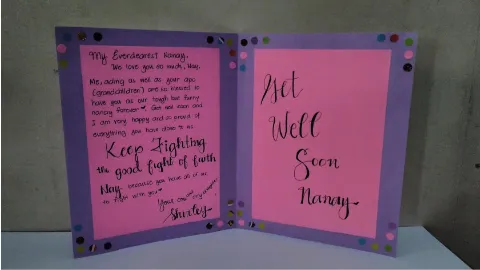 My Everdearest Nanay,
We love you so much, Nay.
Me, ading as well as your apo
(grandchildren) are so blessed to
have you as our tough but funny
nanay forever Get well soon and
I am very happy and so proud of
everything you have done to us.
Keep Fighting
the good fight of faith
Nay, because you have all of us
to with you
Your
Shirley
Get
Well
Soon
Nanay